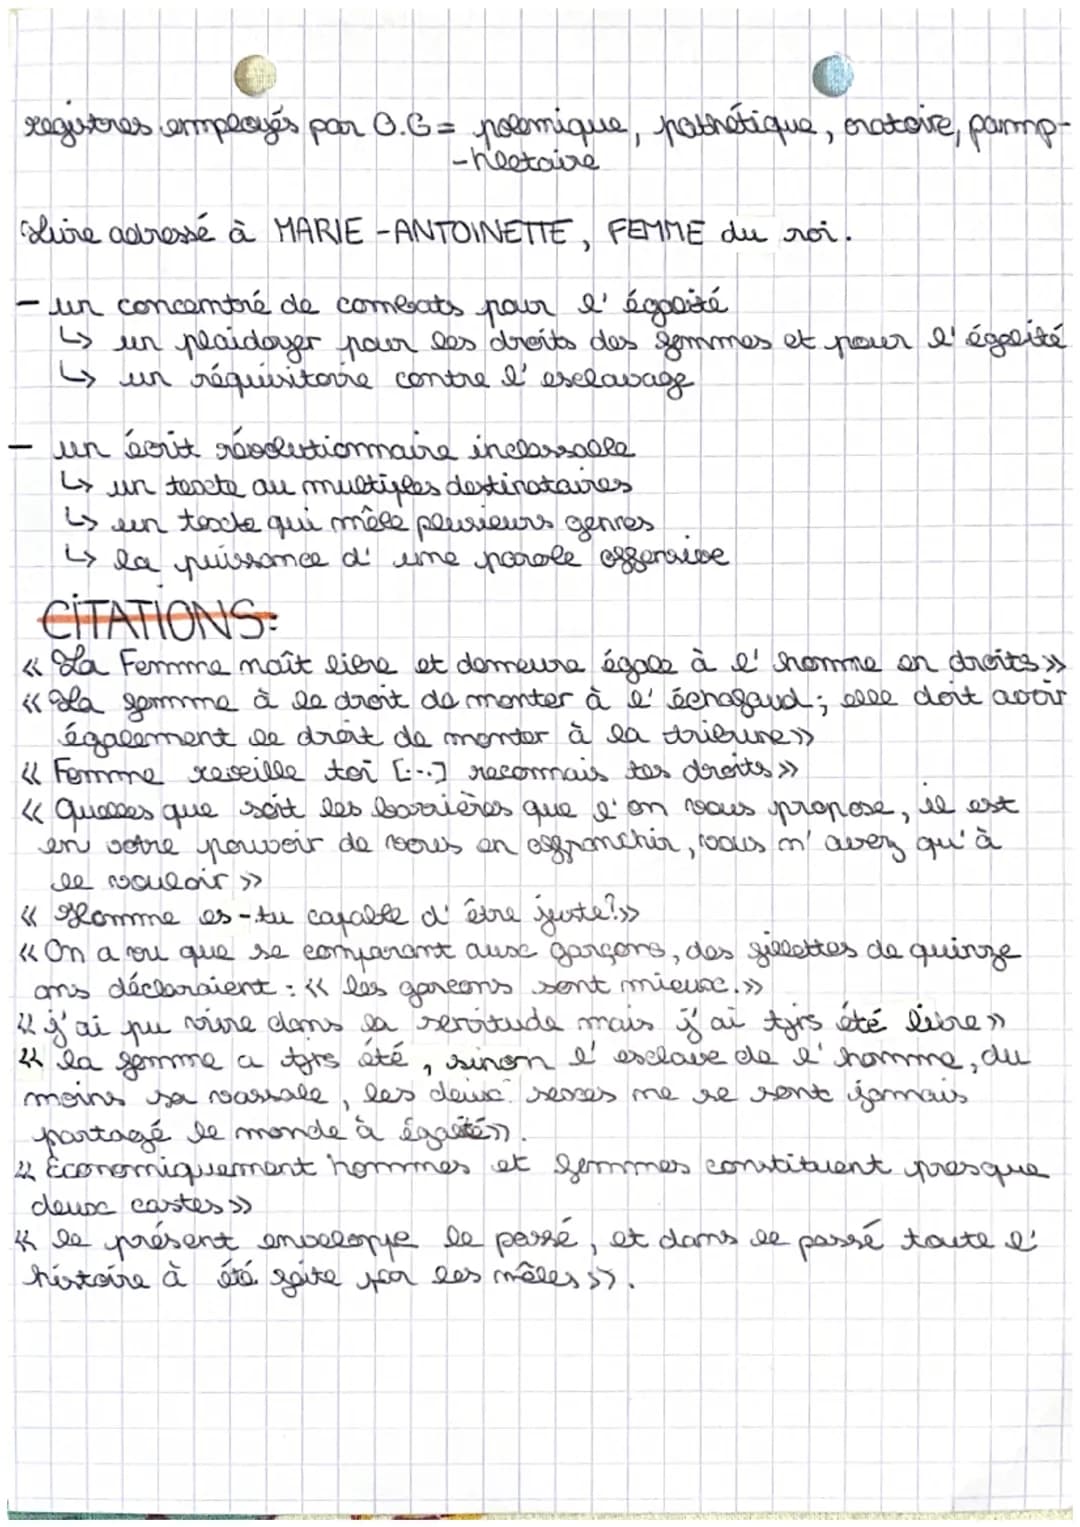 registres employés par O.G = polémique, pathétique, oratoire, pamp-
-hletaire
Livre adressé à MARIE-ANTOINETTE, FEMME du roi.
- un concentré de combats pour l'égalité
↳ un plaidoyer pour les droits des femmes et pour l'égalité
↳ un réquisitoire contre l'esclavage
- un écrit révolutionnaire inclassable
↳ un texte au multiples destinataires
↳ un texte qui mêle plusieurs genres
↳ la puissance d'une parole offensive
CITATIONS:
« La Femme naît libre et demeure égale à l'homme en droits »
« La femme à le droit de monter à l'échafaud ; elle doit avoir
également le droit de monter à la tribune »
« Femme reveille toi [...] reconnais tes droits »
« Quelles que soit les barrières que l'on vous propose, il est
en votre pouvoir de vous en affranchir, vous n'avez qu'à
le vouloir »
« Homme es-tu capable d'être juste? »
« On a vu que se comparant aux garçons, des fillettes de quinze
ans déclaraient : « les garcons sont mieux. »
« j'ai pu vivre dans la servitude mais j'ai tjrs été libre »
« la femme a tjrs été, sinon l'esclave de l'homme, du
moins sa vassale, les deux sexes ne se sont jamais
partagé le monde à égalité ».
« Économiquement hommes et femmes constituent presque
deux castes »
« le présent enveloppe le passé, et dans le passé toute l'
histoire à été faite par les mâles ».